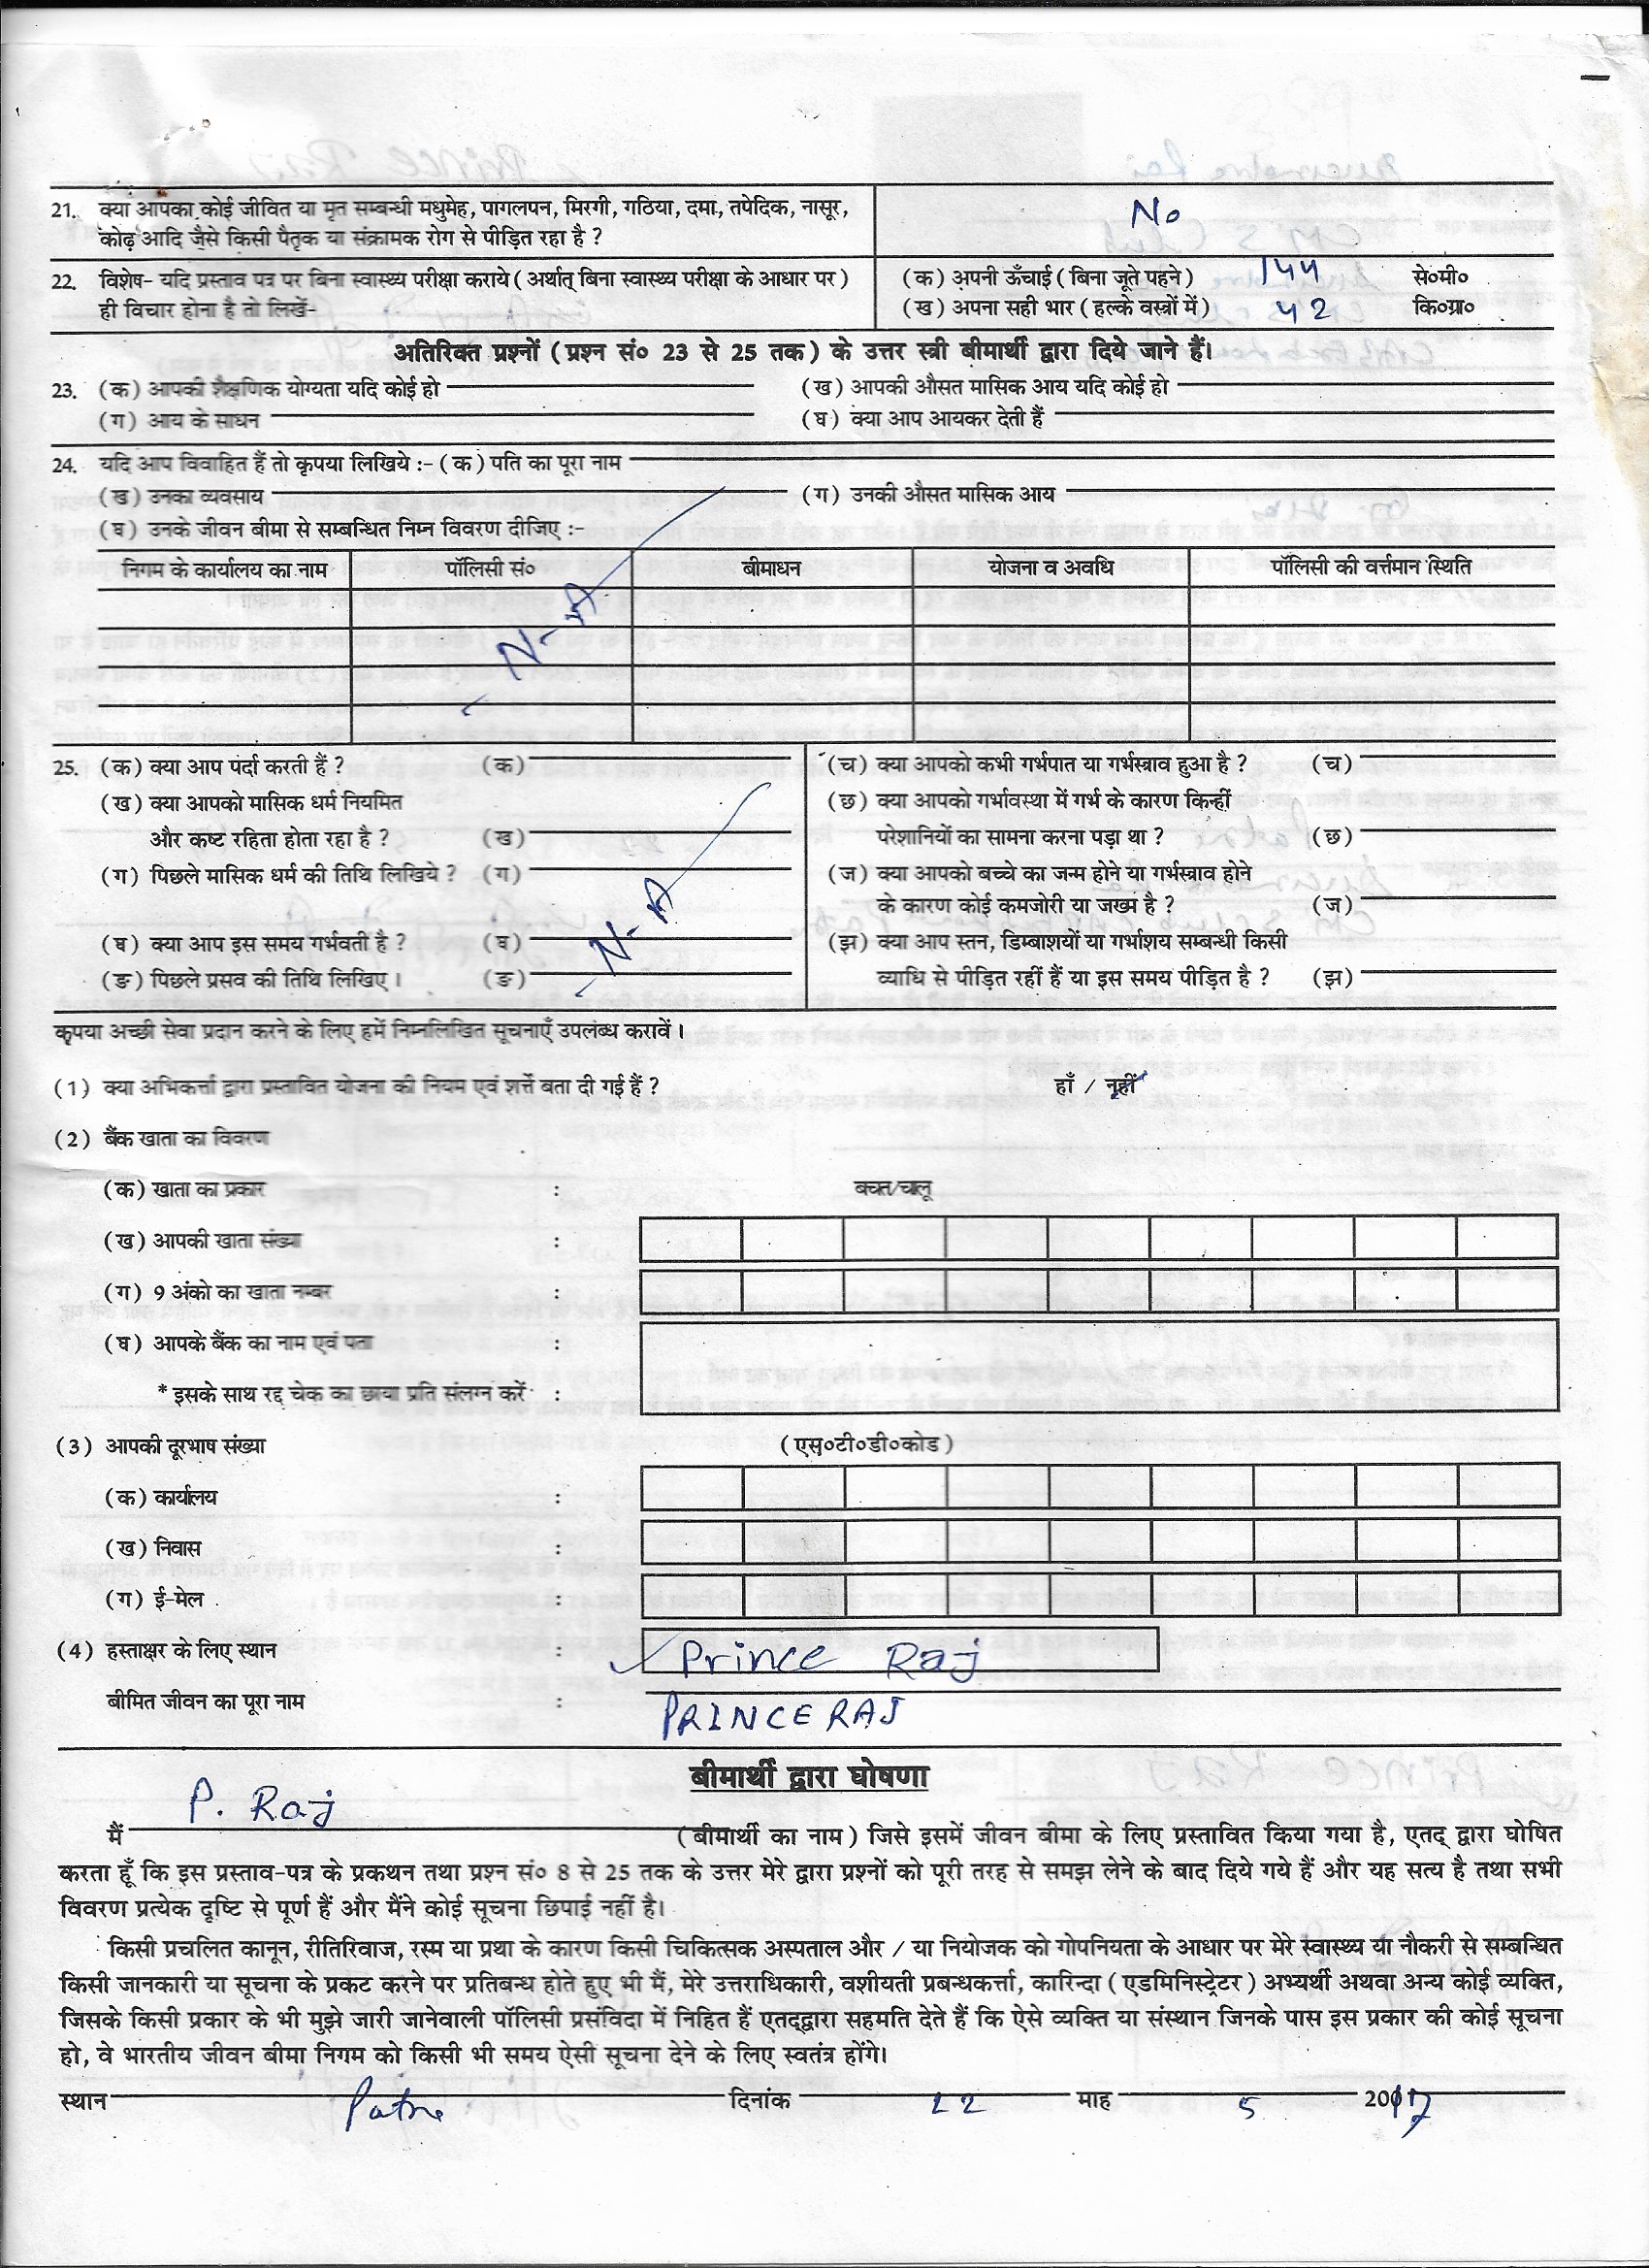 21. क्या आपका कोई जीवित या मृत सम्बन्धी मधुमेह, पागलपन, मिरगी, गठिया, दमा, तपेदिक, नासूर, No
कोढ़ आदि जैसे किसी पैतृक या संक्रामक रोग से पीड़ित रहा है ?
22. विशेष- यदि प्रस्ताव पत्र पर बिना स्वास्थ्य परीक्षा कराये ( अर्थात् बिना स्वास्थ्य परीक्षा के आधार पर ) (क) अपनी ऊँचाई ( बिना जूते पहने ) 144 से०मी०
ही विचार होना है तो लिखें- (ख) अपना सही भार ( हल्के वस्त्रों में ) 42 कि०ग्रा०
अतिरिक्त प्रश्नों ( प्रश्न सं० 23 से 25 तक ) के उत्तर स्त्री बीमार्थी द्वारा दिये जाने हैं।
23. (क) आपकी शैक्षणिक योग्यता यदि कोई हो (ख) आपकी औसत मासिक आय यदि कोई हो
(ग) आय के साधन (घ) क्या आप आयकर देती हैं
24. यदि आप विवाहित हैं तो कृपया लिखिये :- (क) पति का पूरा नाम
(ख) उनका व्यवसाय (ग) उनकी औसत मासिक आय
(घ) उनके जीवन बीमा से सम्बन्धित निम्न विवरण दीजिए :-
निगम के कार्यालय का नाम पॉलिसी सं० बीमाधन योजना व अवधि पॉलिसी की वर्त्तमान स्थिति
N-A
25. (क) क्या आप पर्दा करती हैं ? (क) (च) क्या आपको कभी गर्भपात या गर्भस्त्राव हुआ है ? (च)
(ख) क्या आपको मासिक धर्म नियमित (छ) क्या आपको गर्भावस्था में गर्भ के कारण किन्हीं
और कष्ट रहिता होता रहा है ? (ख) परेशानियों का सामना करना पड़ा था ? (छ)
(ग) पिछले मासिक धर्म की तिथि लिखिये ? (ग) (ज) क्या आपको बच्चे का जन्म होने या गर्भस्त्राव होने
के कारण कोई कमजोरी या जख्म है ? (ज)
N-A
(घ) क्या आप इस समय गर्भवती है ? (घ) (झ) क्या आप स्तन, डिम्बाशयों या गर्भाशय सम्बन्धी किसी
(ङ) पिछले प्रसव की तिथि लिखिए । (ङ) व्याधि से पीड़ित रहीं हैं या इस समय पीड़ित है ? (झ)
कृपया अच्छी सेवा प्रदान करने के लिए हमें निम्नलिखित सूचनाएँ उपलंब्ध करावें ।
(1) क्या अभिकर्त्ता द्वारा प्रस्तावित योजना की नियम एवं शर्त्तें बता दी गई हैं ? हाँ / नहीं
(2) बैंक खाता का विवरण
(क) खाता का प्रकार : बचत/चालू
(ख) आपकी खाता संख्या :
(ग) 9 अंको का खाता नम्बर :
(घ) आपके बैंक का नाम एवं पता :
* इसके साथ रद्द चेक का छाया प्रति संलग्न करें :
(3) आपकी दूरभाष संख्या (एस०टी०डी०कोड)
(क) कार्यालय :
(ख) निवास :
(ग) ई-मेल :
(4) हस्ताक्षर के लिए स्थान : Prince Raj
बीमित जीवन का पूरा नाम : PRINCE RAJ
बीमार्थी द्वारा घोषणा
P. Raj
मैं ( बीमार्थी का नाम ) जिसे इसमें जीवन बीमा के लिए प्रस्तावित किया गया है, एतद् द्वारा घोषित
करता हूँ कि इस प्रस्ताव-पत्र के प्रकथन तथा प्रश्न सं० 8 से 25 तक के उत्तर मेरे द्वारा प्रश्नों को पूरी तरह से समझ लेने के बाद दिये गये हैं और यह सत्य है तथा सभी
विवरण प्रत्येक दृष्टि से पूर्ण हैं और मैंने कोई सूचना छिपाई नहीं है।
किसी प्रचलित कानून, रीतिरिवाज, रस्म या प्रथा के कारण किसी चिकित्सक अस्पताल और / या नियोजक को गोपनियता के आधार पर मेरे स्वास्थ्य या नौकरी से सम्बन्धित
किसी जानकारी या सूचना के प्रकट करने पर प्रतिबन्ध होते हुए भी मैं, मेरे उत्तराधिकारी, वशीयती प्रबन्धकर्त्ता, कारिन्दा ( एडमिनिस्ट्रेटर ) अभ्यर्थी अथवा अन्य कोई व्यक्ति,
जिसके किसी प्रकार के भी मुझे जारी जानेवाली पॉलिसी प्रसंविदा में निहित हैं एतद्द्वारा सहमति देते हैं कि ऐसे व्यक्ति या संस्थान जिनके पास इस प्रकार की कोई सूचना
हो, वे भारतीय जीवन बीमा निगम को किसी भी समय ऐसी सूचना देने के लिए स्वतंत्र होंगे।
स्थान Patna दिनांक 22 माह 5 20017